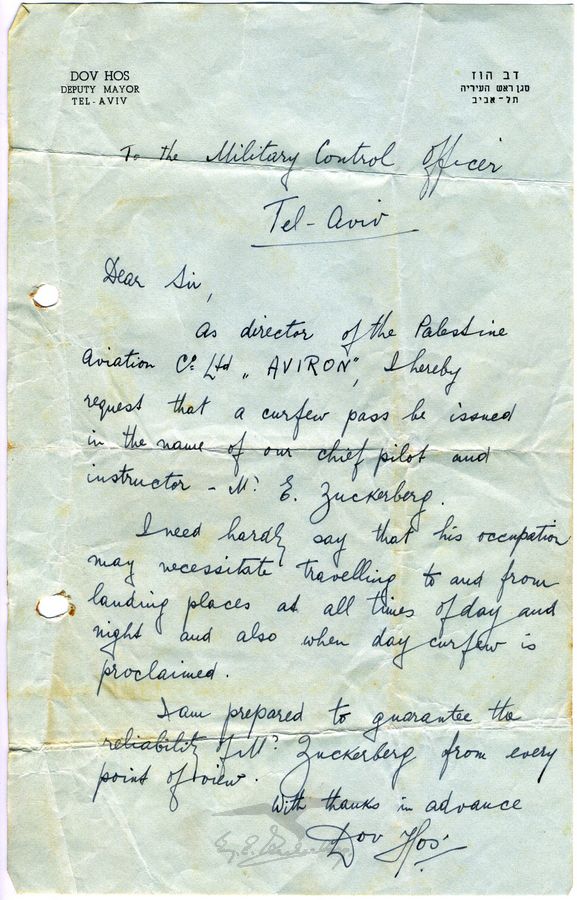 DOV HOS
DEPUTY MAYOR
TEL-AVIV
דב הוז
סגן ראש העיריה
תל-אביב
To the Military Control Officer
Tel-Aviv
Dear Sir,
As director of the Palestine
Aviation Co. Ltd „AVIRON", I hereby
request that a curfew pass be issued
in the name of our chief pilot and
instructor - Mr. E. Zuckerberg.
I need hardly say that his occupation
may necessitate travelling to and from
landing places at all times of day and
night and also when day curfew is
proclaimed.
I am prepared to guarantee the
reliability of Mr. Zuckerberg from every
point of view.
With thanks in advance
Dov Hos.